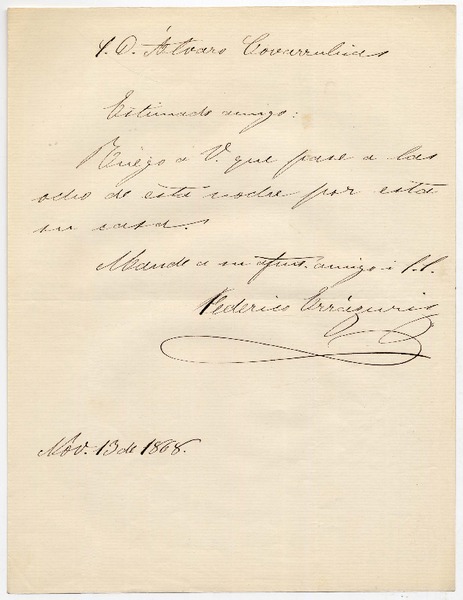 S. D. Álvaro Covarrubias
Estimado amigo:
Ruego a V. que pase a las
ocho de esta noche por esta
su casa.
Mande a su afmo. amigo i S. S.
Federico Errázuriz
Nov. 13 de 1868.